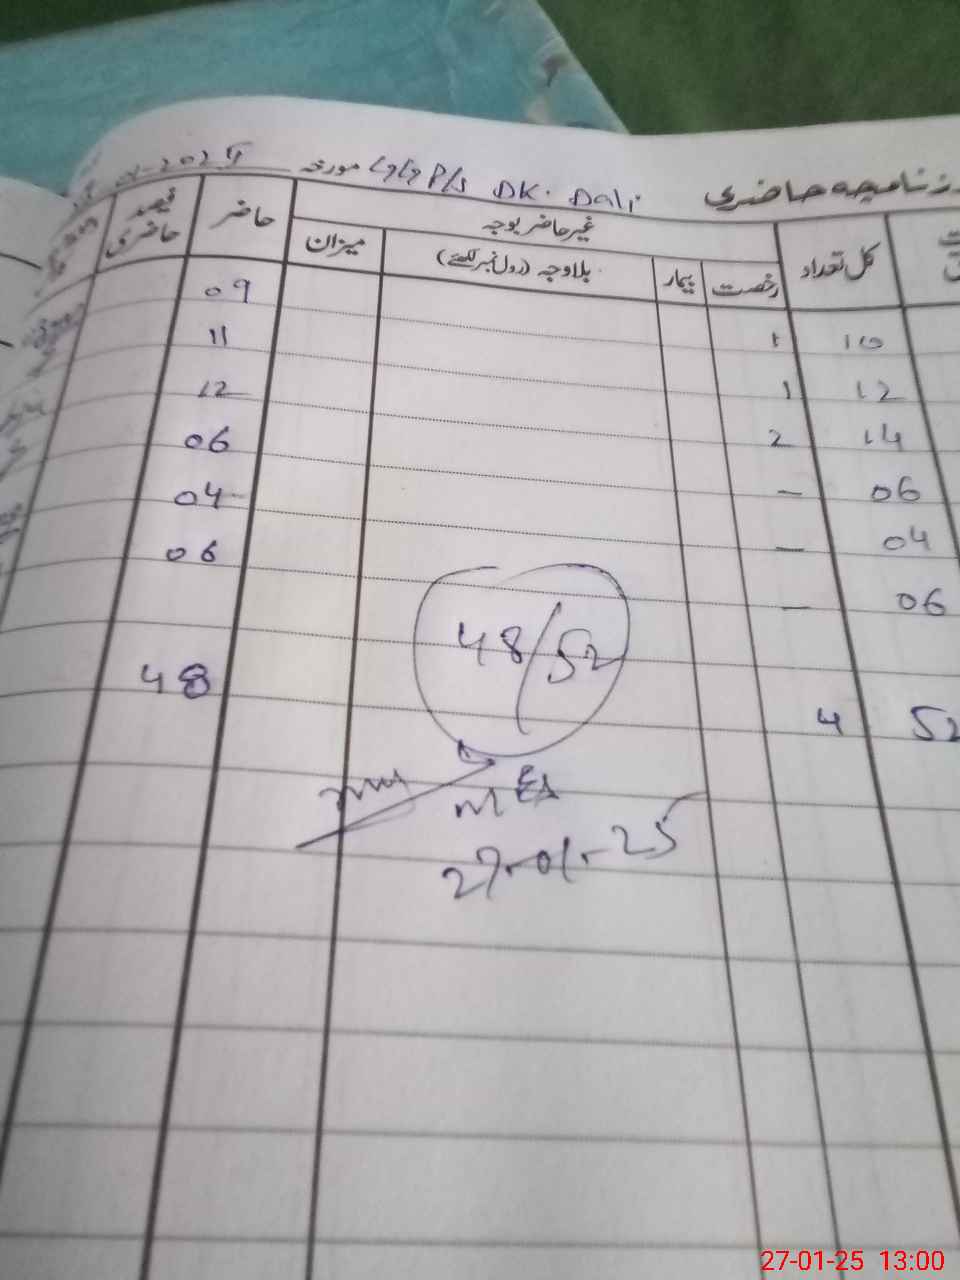 روزنامچہ حاضری DK. Dali P/S مورخہ
کل تعداد رخصت بیمار بلاوجہ (رول نمبر لکھئے) غیر حاضر بوجہ میزان حاضر فیصد حاضری
10 1 09
12 1 11
14 2 12
06 — 06
04 — 04
06 — 06
52 4 48
48/52
27-01-25
27-01-25 13:00